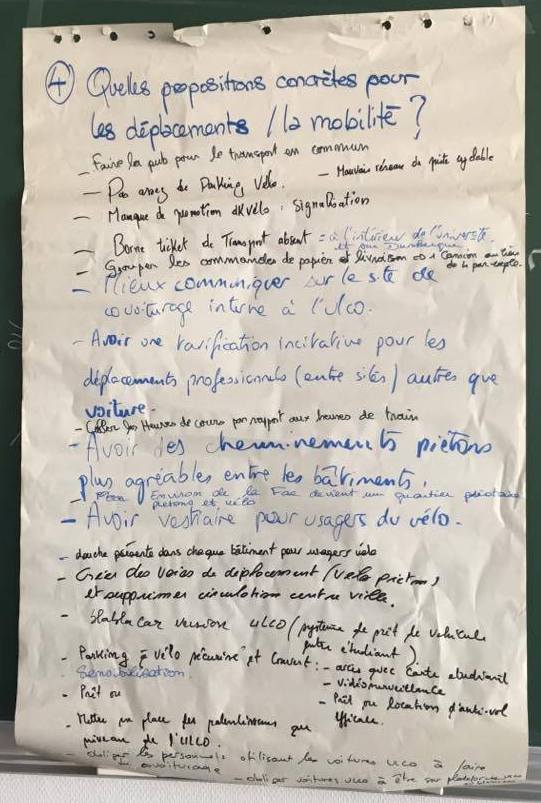 4 Quelles propositions concrètes pour
les déplacements / la mobilité ?
- Faire la pub pour le transport en commun
- Mauvais réseau de piste cyclable
- Pas assez de Parking Vélo.
- Manque de promotion du vélo, signalisation
- Borne ticket de Transport absent = à l'intérieur de l'université
et sur Dunkerque
- Grouper les commandes de papier et livraison 1 camion au lieu
de 4 par exple.
- Mieux communiquer sur le site de
covoiturage interne à l'ulco.
- Avoir une tarification incitative pour les
déplacements professionnels (entre sites) autres que
voiture.
- Caler les Heures de cours par rapport aux heures de train
- Avoir des cheminements piétons
plus agréables entre les bâtiments.
- Environ de la Fac devient un quartier prioritaire
piétons et vélo
- Avoir vestiaire pour usagers du vélo.
- douche présente dans chaque bâtiment pour usagers vélo
- Créer des Voies de déplacement (Vélo piétons)
et supprimer circulation centre ville.
- Blabla Car version ULCO (système de prêt de véhicule
entre étudiant)
- Parking à vélo sécurisé et couvert : - accès avec Carte etudiant
- Sensibilisation
- Vidéosurveillance
- Prêt ou
- Prêt ou location d'anti-vol
efficace.
- Mettre en place des ralentisseurs au
niveau de l'ULCO.
- obliger les personnels utilisant les voitures ULCO à faire
du covoiturage
- obliger voitures ULCO à être sur plateforme